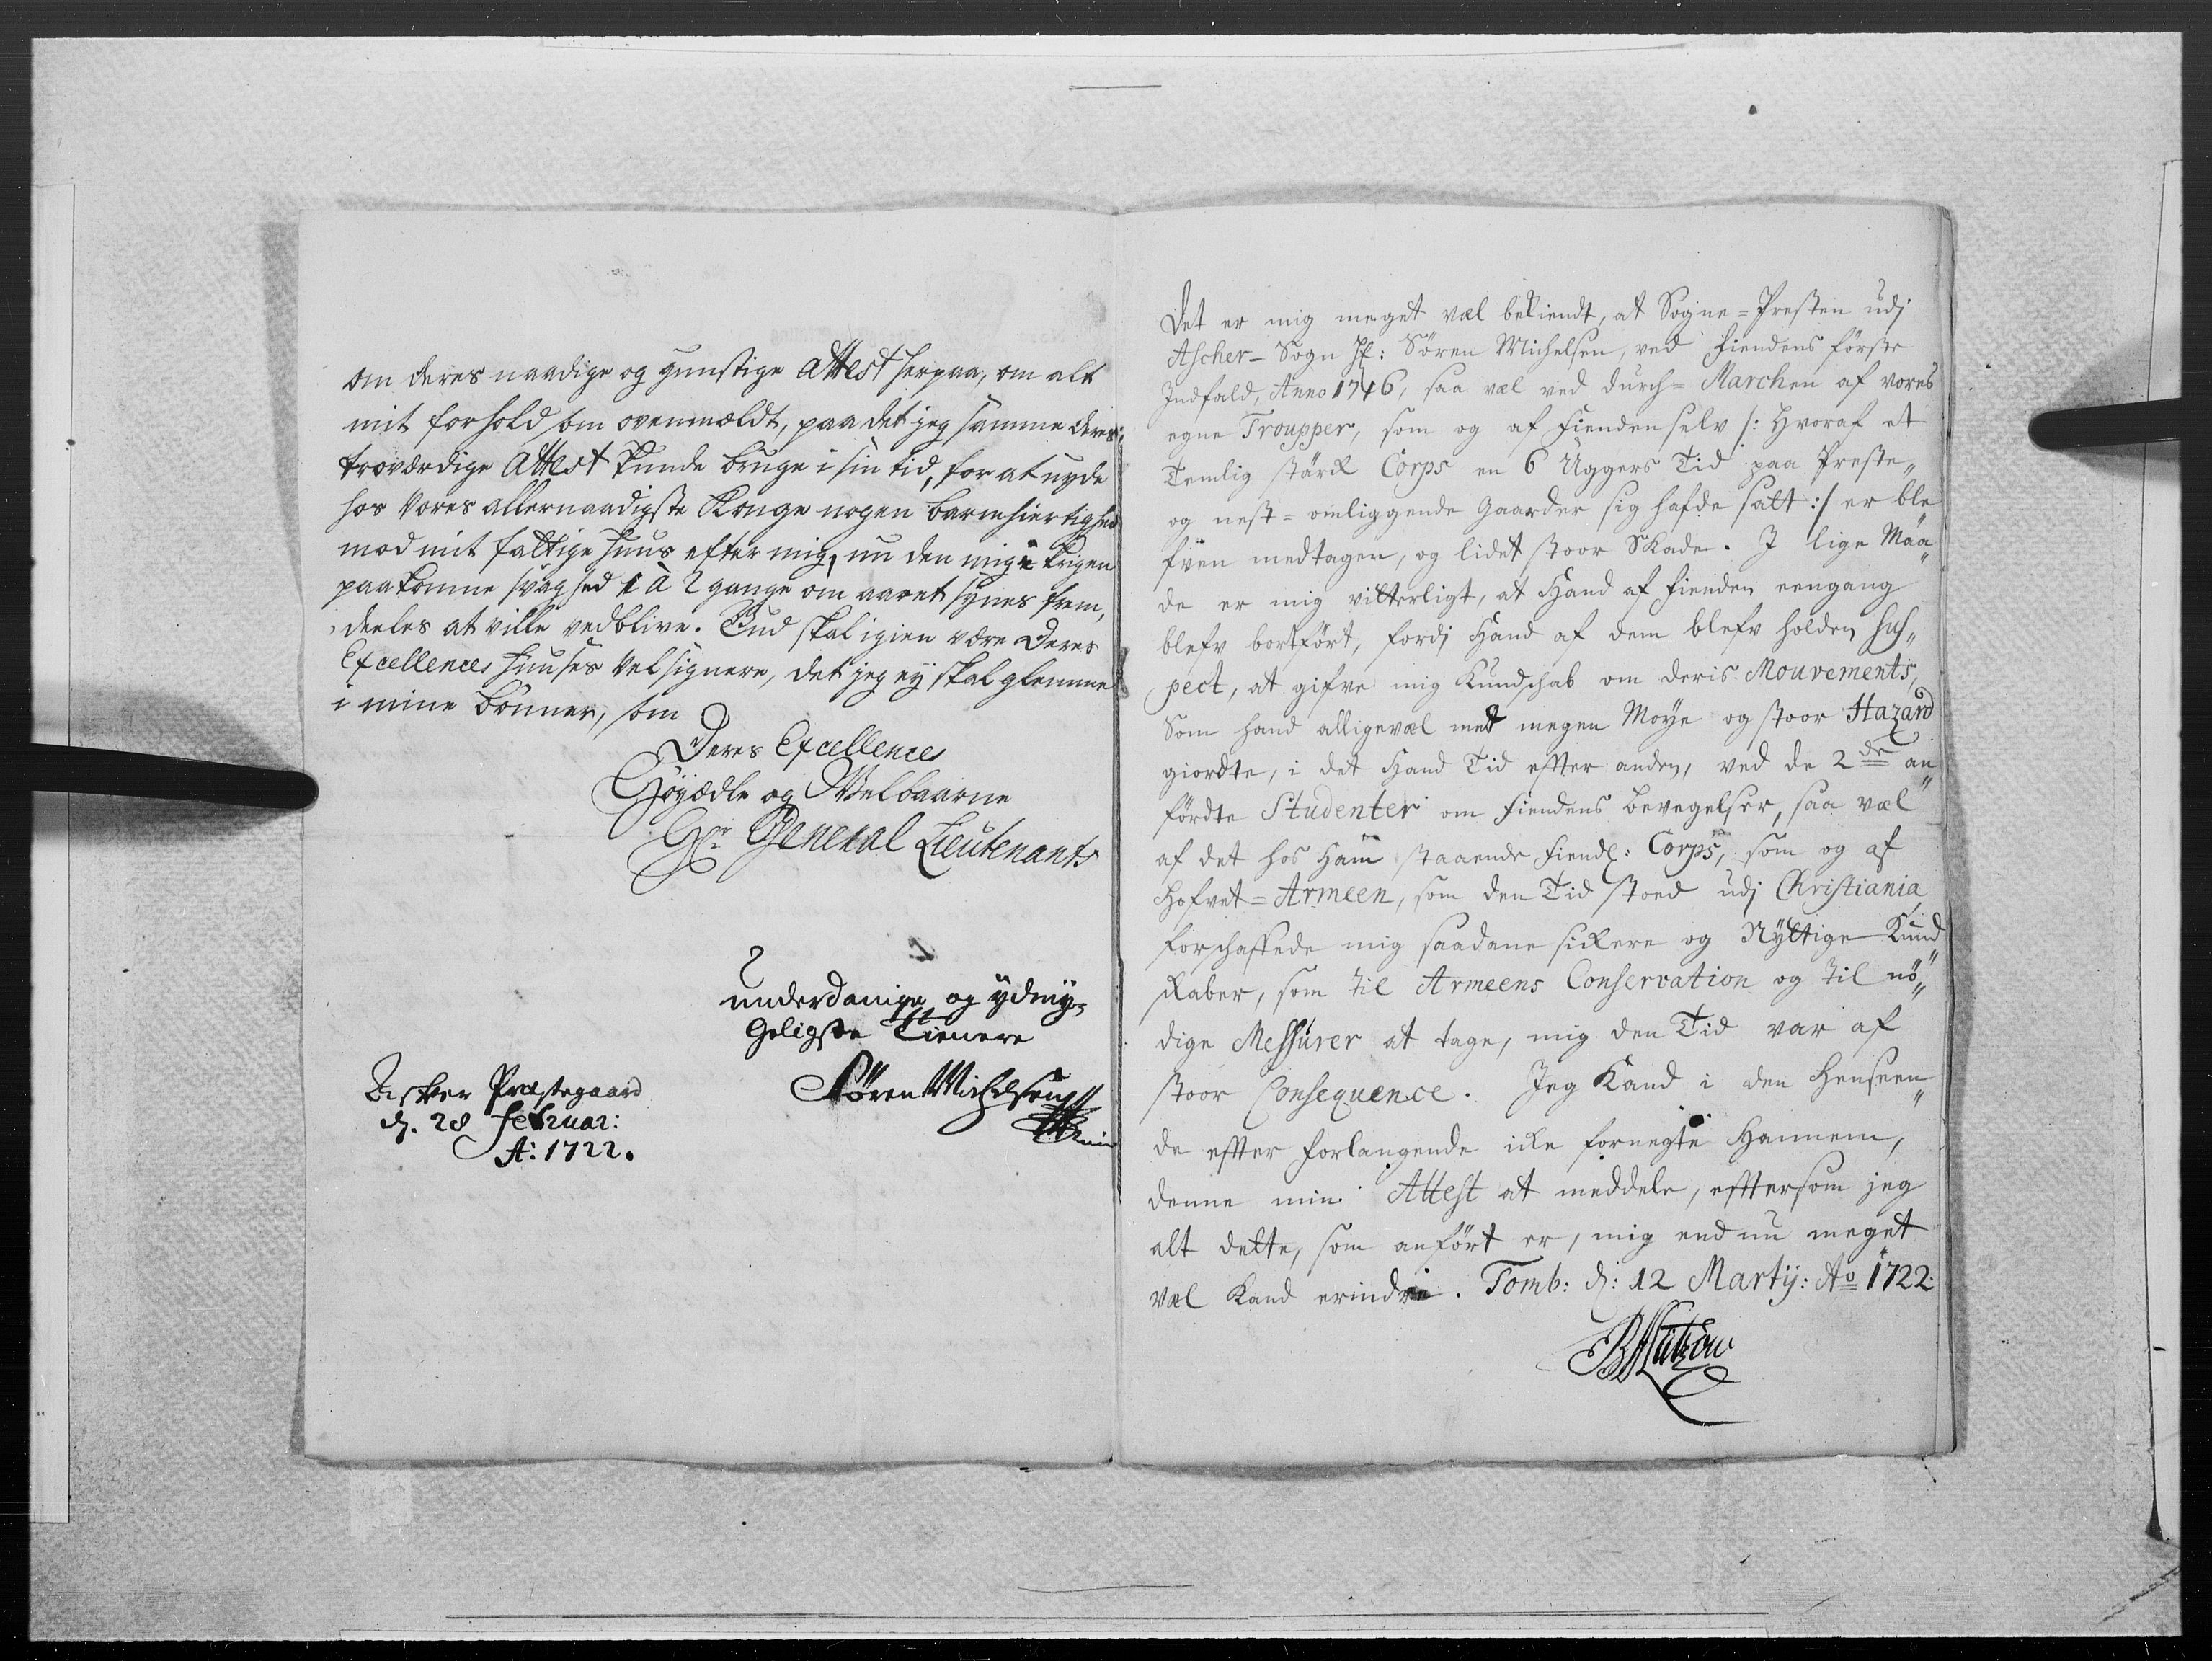 om deres naadige og gunstige attest herpaa, om alt
mit forhold som ovenmældt, paa det jeg samme deres
troværdige Attest kunde bruge i sin tid, for at nyde
hos Vores allernaadigste Konge nogen barmhiertighed
mod mit fattige huus efter mig, nu den mig i krigen
paakomne svaghed 1 à 2 gange om aaret synes frem,
deeles at ville vedblive. Gud skal igien være Deres
Excellences huuses Velsignere, det jeg ej skal glemme
i mine bønner, som
Deres Excellences
Høyædle og Welbaarne
Hr General Lieutenants
underdanige og ydmy-
geligste Tienere
Søren Michelsen
Asker Præstegaard
d. 28 Februar:
A: 1722.
Det er mig meget vel bekiendt, at Sogne-Presten udj
Ascher-Sogn Hr: Søren Michelsen, ved Fiendens første
Indfald, Anno 1716, saa vel ved durch-Marchen af vores
egne Troupper, som og af Fienden selv /: Hvoraf et
Temlig stärk Corps en 6 Uggers Tid paa Preste„
og nest-omliggende Gaarder sig hafde satt :/ er ble
fven medtagen, og lidet stoor Skade. I lige Maa„
de er mig vitterligt, at Hand af Fienden eengang
blefv bortført, fordj Hand af dem blefv holden sus„
pect, at gifve mig Kundschab om deris Mouvements,
Som hand alligevel med megen Moye og stoor Hazard
giordte, i det Hand Tid effter anden, ved de 2de an„
førdte Studenter om Fiendens bevegelser, saa vel
af det hos Ham staaende Fiendl: Corps, som og af
Hofvet-Armeen, som den Tid stoed udj Christiania,
forschaffede mig saadane sickere og Nyttige Kund„
skaber, som til Armeens Conservation og til nö„
dige Messurer at tage, mig den Tid var af
stoor Consequence. Jeg Kand i den Henseen„
de effter forlangende icke fornegte Hannem,
denne min Attest at meddele, efftersom jeg
alt dette, som anført er, mig end nu meget
vel Kand erindre. Tomb: d: 12 Martij: Ao 1722:
BHLützow